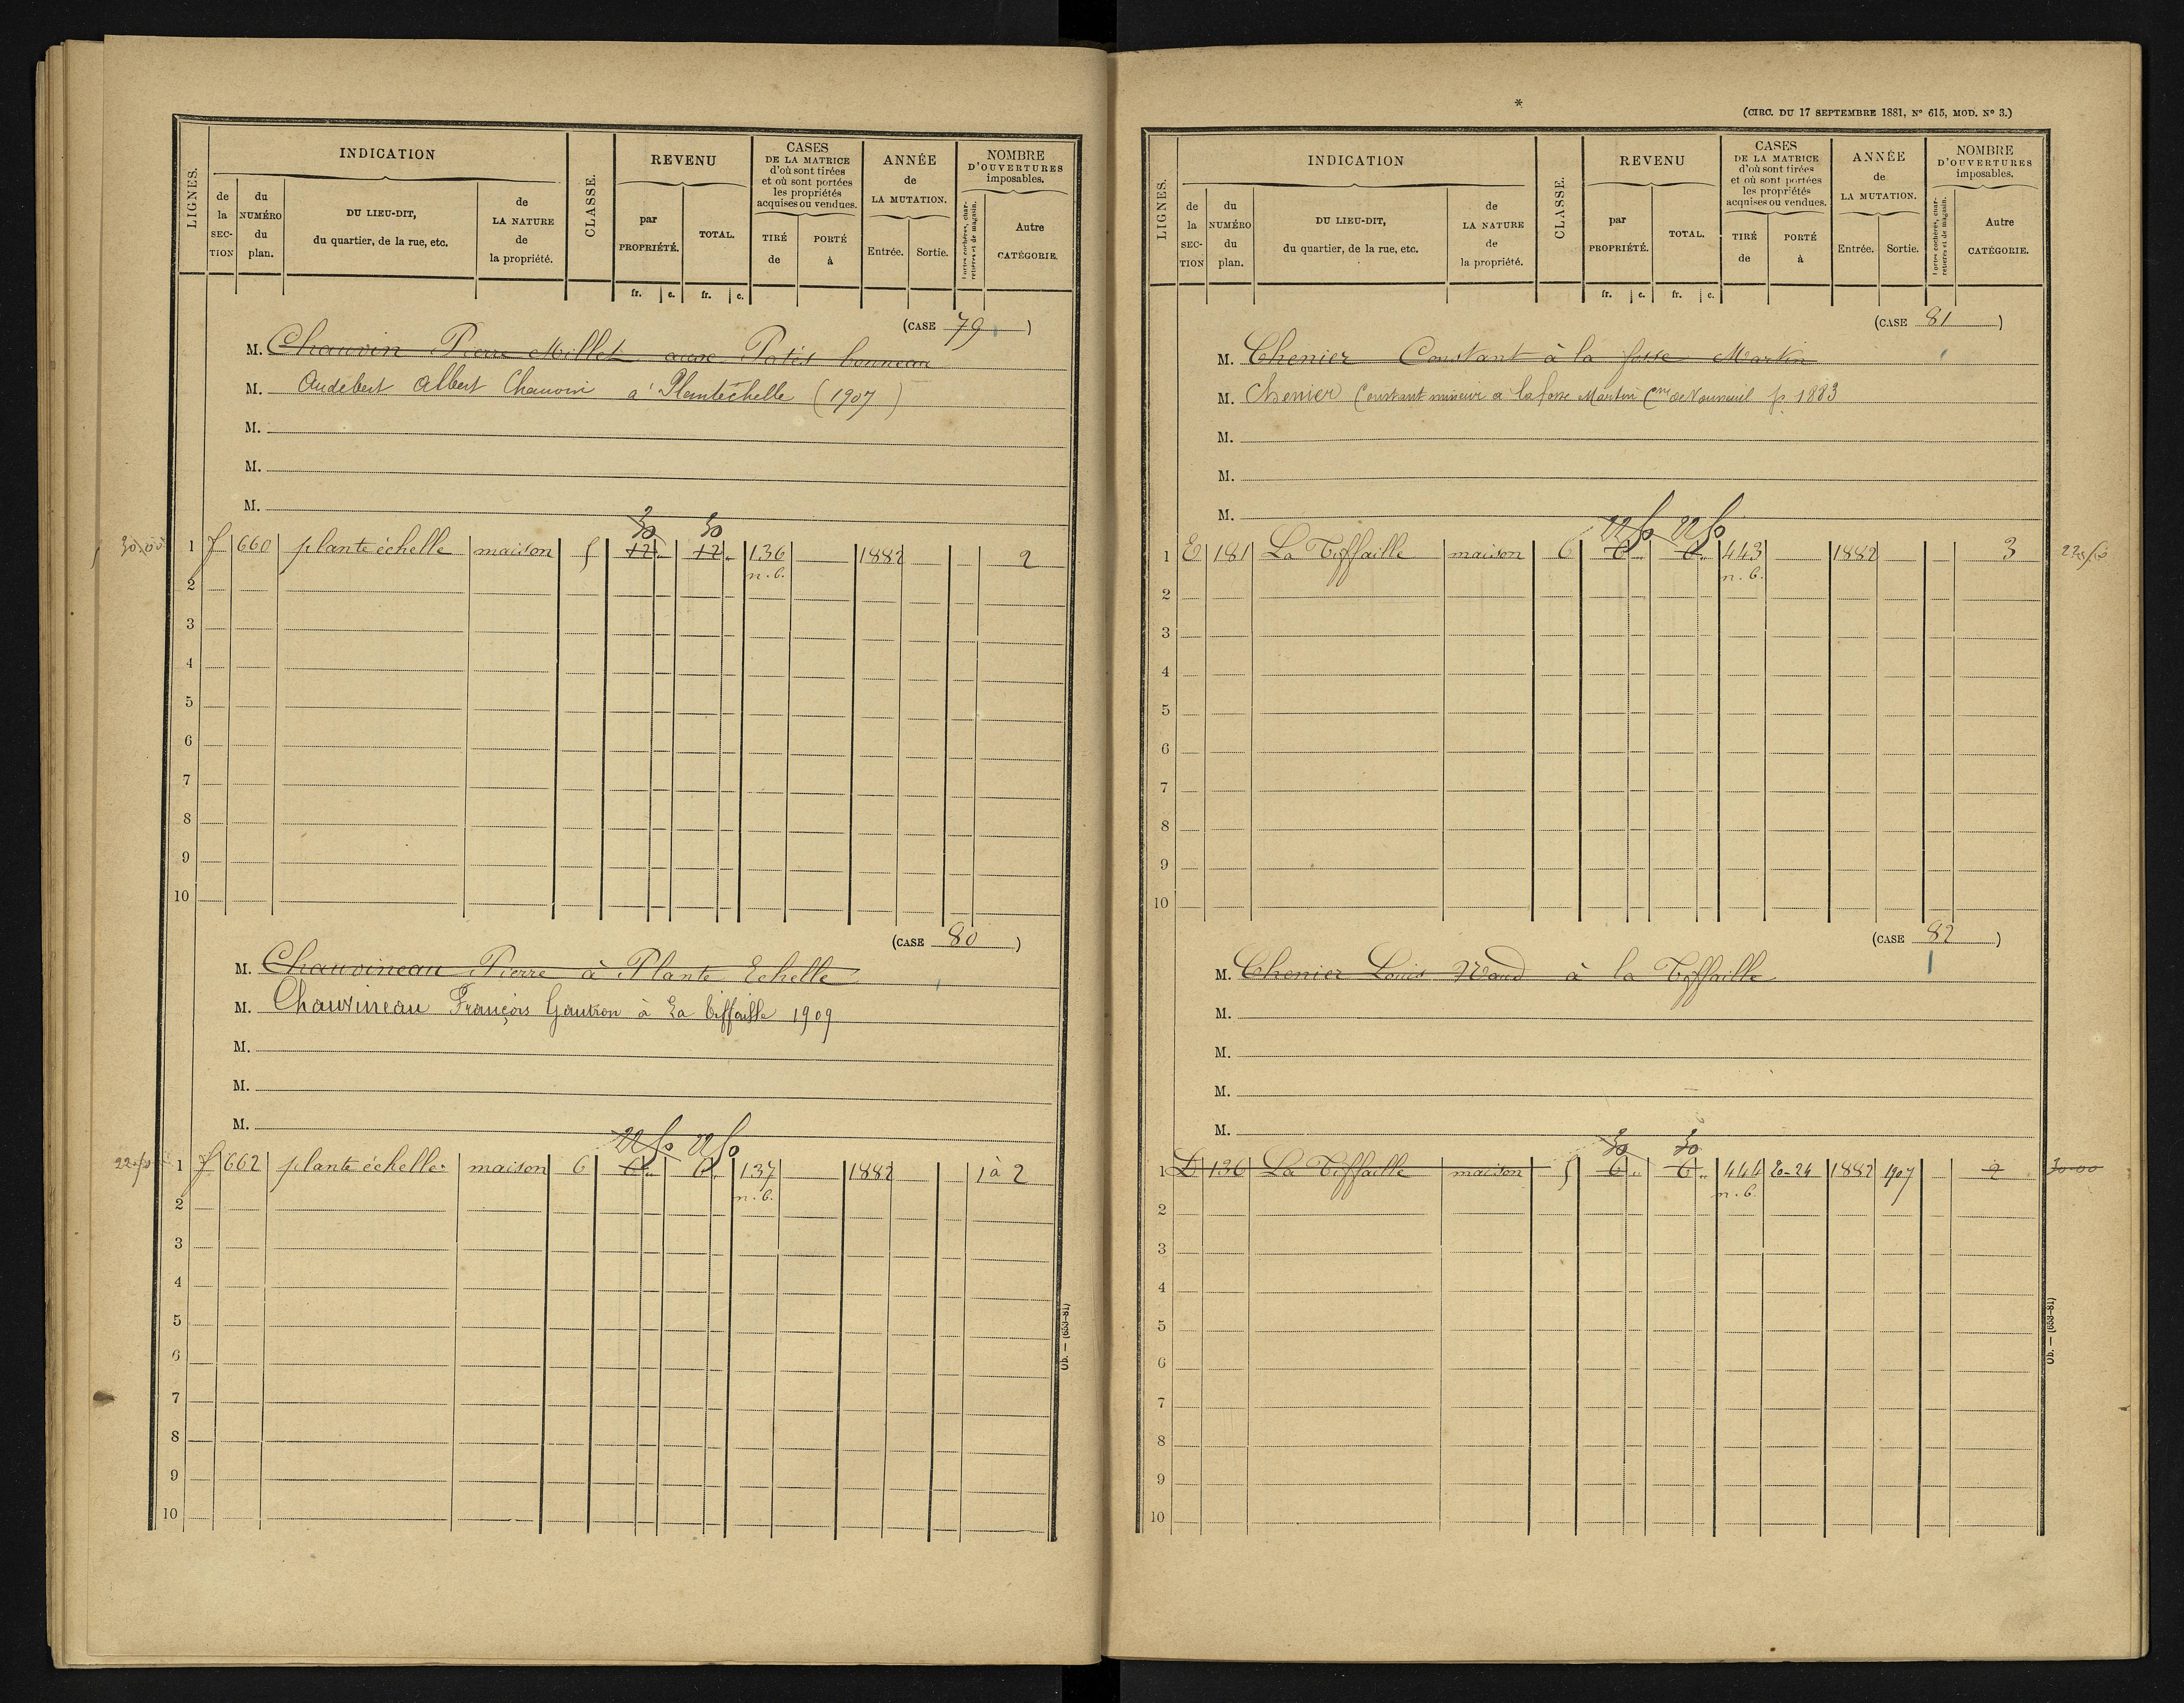 LIGNES.
INDICATION
de la SEC-TION
du NUMÉRO du plan.
DU LIEU-DIT, du quartier, de la rue, etc.
de LA NATURE de la propriété.
CLASSE.
REVENU
par PROPRIÉTÉ.
TOTAL.
fr. c. fr. c.
CASES DE LA MATRICE d'où sont tirées et où sont portées les propriétés acquises ou vendues.
TIRÉ de
PORTÉ à
ANNÉE de LA MUTATION.
Entrée. Sortie.
NOMBRE D'OUVERTURES imposables.
Portes cochères, charretières et de magasin.
Autre CATÉGORIE.
(CASE 79)
M. Chauvin Pierre Millet aux Patis bonneau
M. Audebert Albert Chauvin à Plantéchelle (1907)
M.
M.
M.
30 30
30,00 1 f 660 plante échelle maison 5 12 " 12 " 136 1882 2
n. b.
2
3
4
5
6
7
8
9
10
(CASE 80)
M. Chauvineau Pierre à Plante Echelle
M. Chauvineau François Gautron à La Tiffaille 1909
M.
M.
M.
22 50 22 50
22,50 1 f 662 plante échelle maison 6 6 " 6 " 137 1882 1 à 2
n. b.
2
3
4
5
6
7
8
9
10
Ob. — (653-81)
*
(CIRC. DU 17 SEPTEMBRE 1881, N° 615, MOD. N° 3.)
LIGNES.
INDICATION
de la SEC-TION
du NUMÉRO du plan.
DU LIEU-DIT, du quartier, de la rue, etc.
de LA NATURE de la propriété.
CLASSE.
REVENU
par PROPRIÉTÉ.
TOTAL.
fr. c. fr. c.
CASES DE LA MATRICE d'où sont tirées et où sont portées les propriétés acquises ou vendues.
TIRÉ de
PORTÉ à
ANNÉE de LA MUTATION.
Entrée. Sortie.
NOMBRE D'OUVERTURES imposables.
Portes cochères, charretières et de magasin.
Autre CATÉGORIE.
(CASE 81)
M. Chenier Constant à la fosse Martin
M. Chenier Constant mineur à la fosse Martin Cne de Vouneuil p. 1883
M.
M.
M.
22 50 22 50
1 E 181 La Tiffaille maison 6 6 " 6 " 443 1882 3 22,50
n. b.
2
3
4
5
6
7
8
9
10
(CASE 82)
M. Chenier Louis à la Tiffaille
M.
M.
M.
M.
30 30
1 D 136 La Tiffaille maison 5 6 " 6 " 444 20-24 1882 1907 2 30-00
n. b.
2
3
4
5
6
7
8
9
10
Ob. — (653-81)